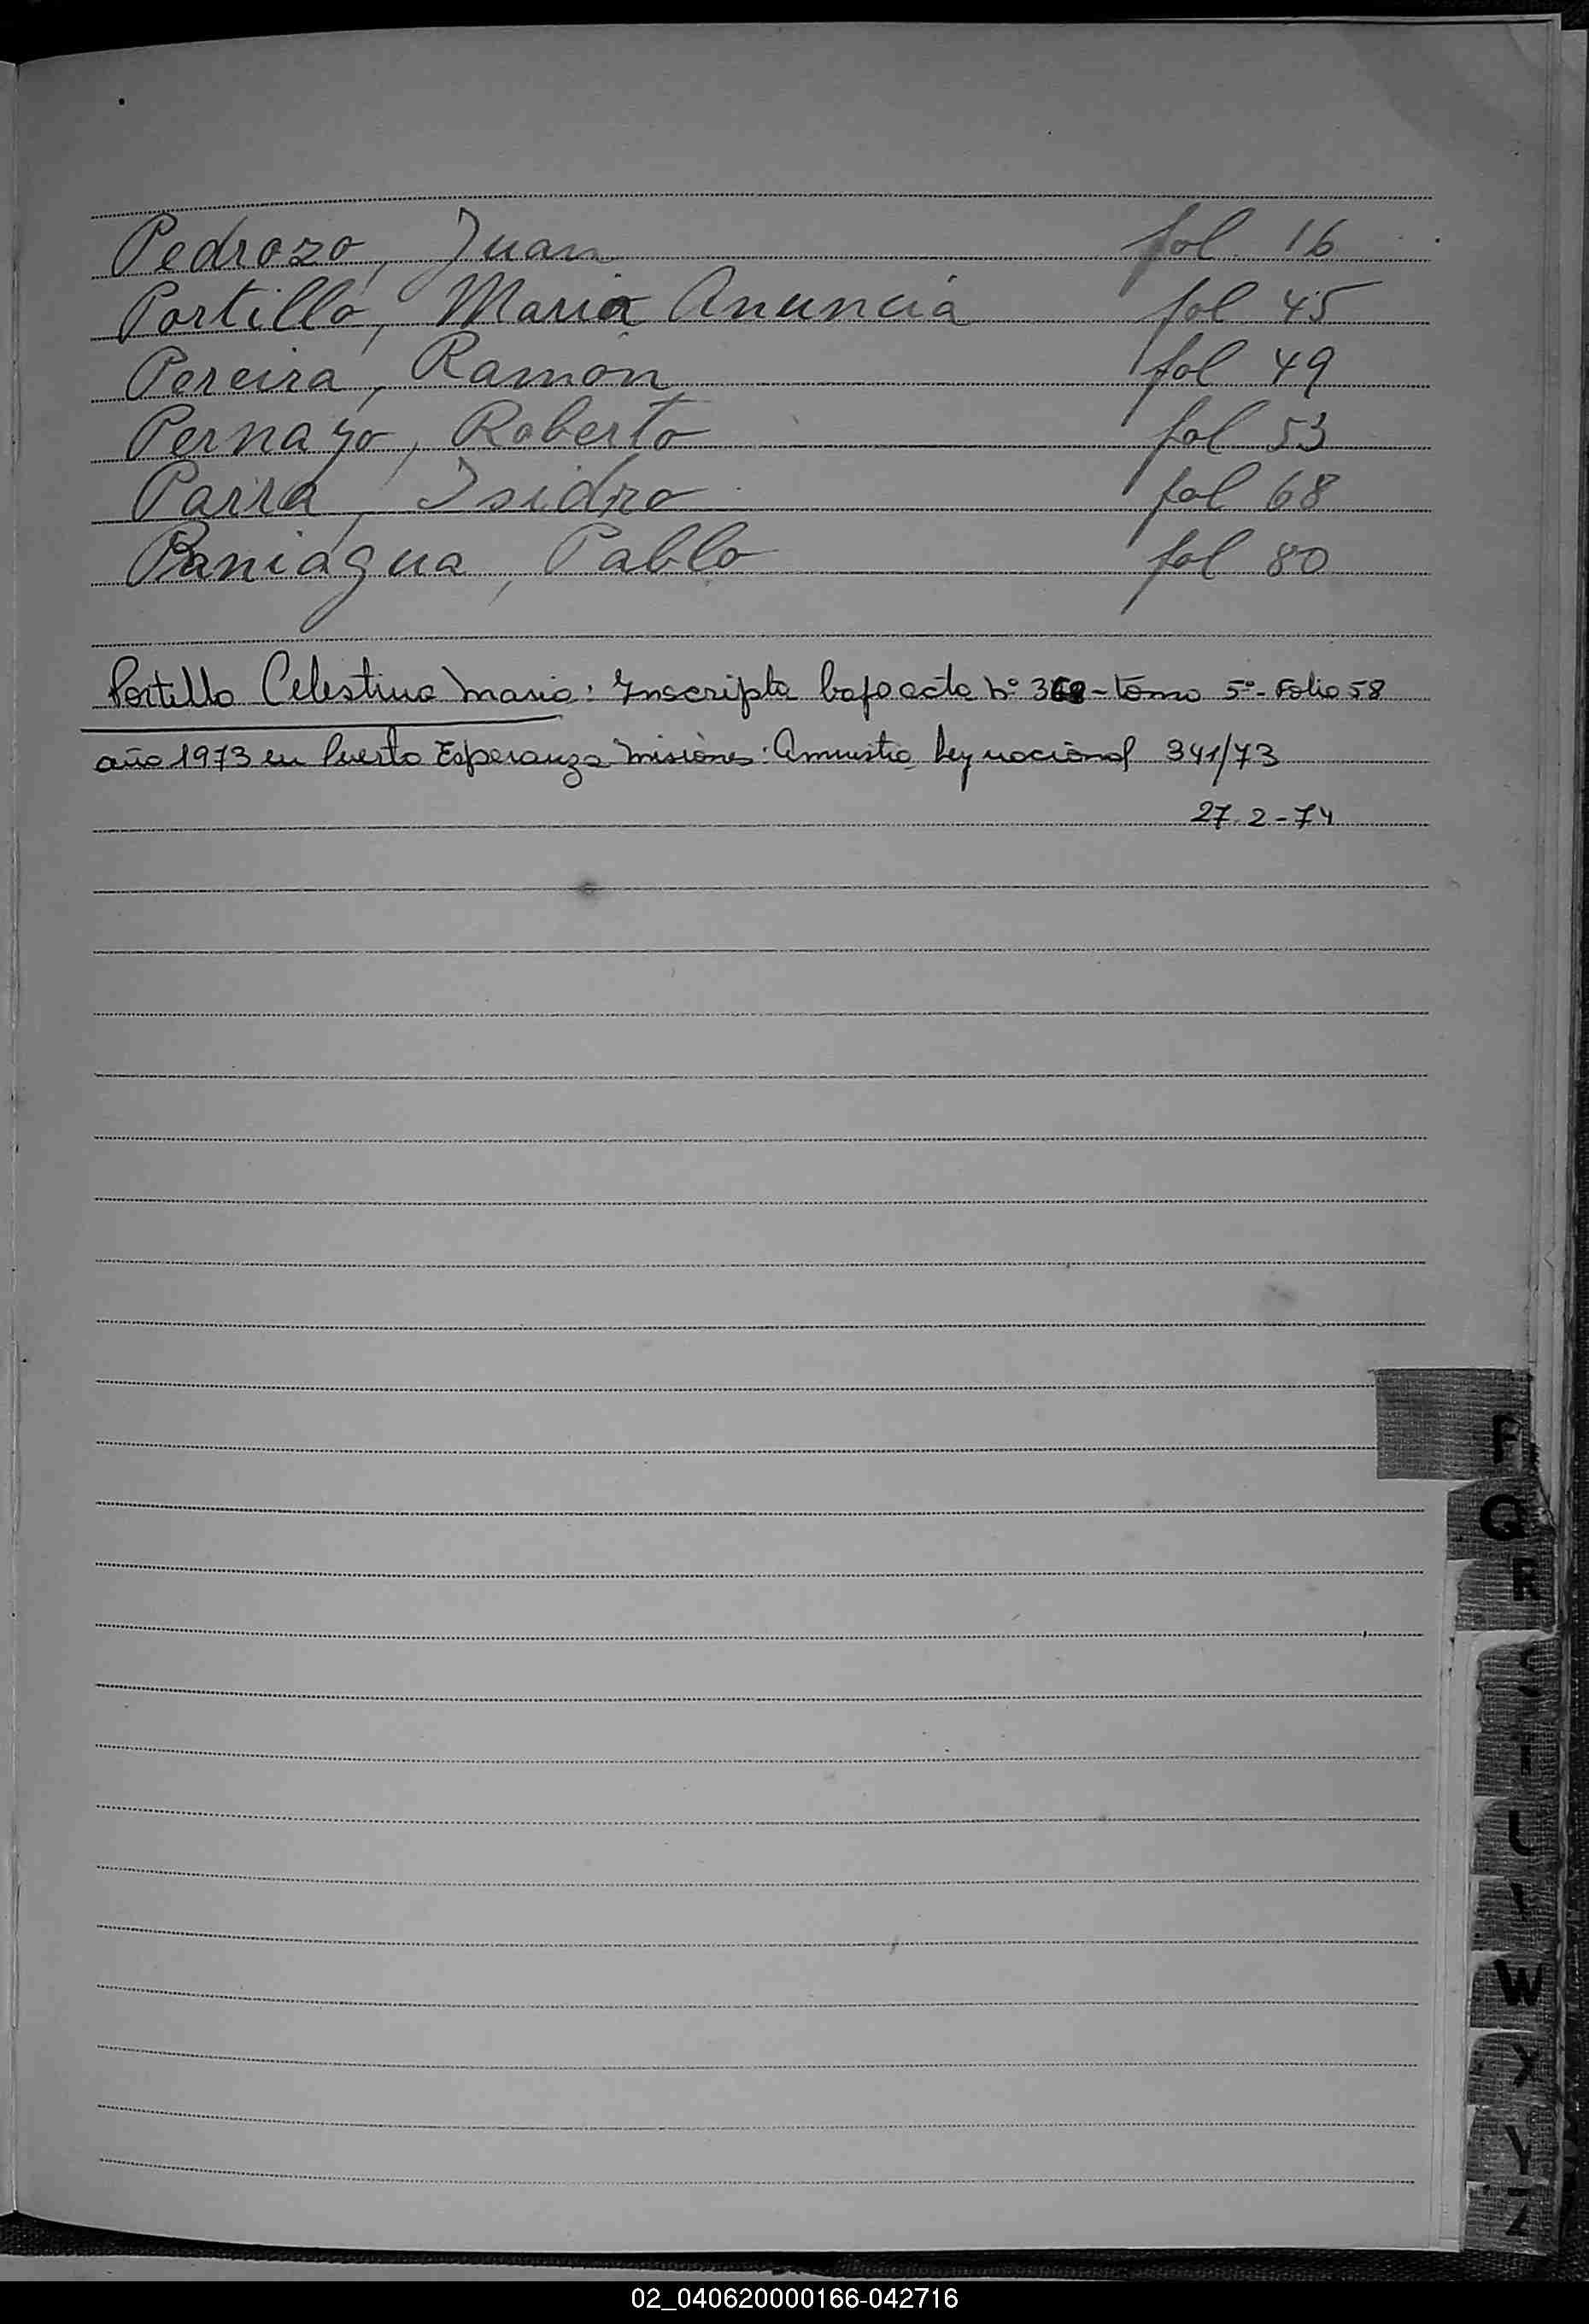 Pedrozo, Juan fol. 16
Portillo, Maria Anuncia fol 45
Pereira, Ramón fol 49
Pernayo, Roberto fol 53
Parra, Isidro fol 68
Paniagua, Pablo fol 80
Portillo Celestina Maria: Inscripta bajo acta Nº - tomo 5º - Folio 58
año 1973 en Puerto Esperanza Misiones: Amnistia Ley nacional 341/73
27-2-74
P
Q
R
S
T
U
V
W
X
Y
Z
02_040620000166-042716